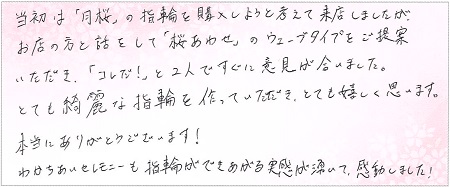 当初は「月桜」の指輪を購入しようと考えて来店しましたが、
お店の方と話をして「桜あわせ」のウェーブタイプをご提案
いただき、「コレだ!」と2人ですぐに意見が合いました。
とても綺麗な指輪を作っていただき、とても嬉しく思います。
本当にありがとうございます!
わかちあいセレモニーも指輪ができあがる実感が湧いて、感動しました!